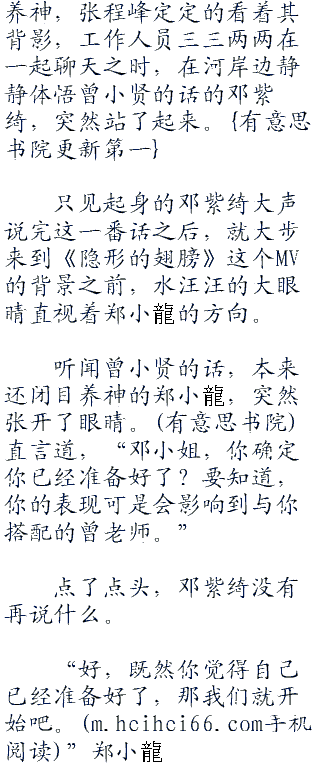 养神，张程峰定定的看着其
背影，工作人员三三两两在
一起聊天之时，在河岸边静
静体悟曾小贤的话的邓紫
绮，突然站了起来。{有意思
书院更新第一}
只见起身的邓紫绮大声
说完这一番话之后，就大步
来到《隐形的翅膀》这个MV
的背景之前，水汪汪的大眼
睛直视着郑小龍的方向。
听闻曾小贤的话，本来
还闭目养神的郑小龍，突然
张开了眼睛。(有意思书院)
直言道，“邓小姐，你确定
你已经准备好了？要知道，
你的表现可是会影响到与你
搭配的曾老师。”
点了点头，邓紫绮没有
再说什么。
“好，既然你觉得自己
已经准备好了，那我们就开
始吧。(m.hcihci66.com手机
阅读)”郑小龍